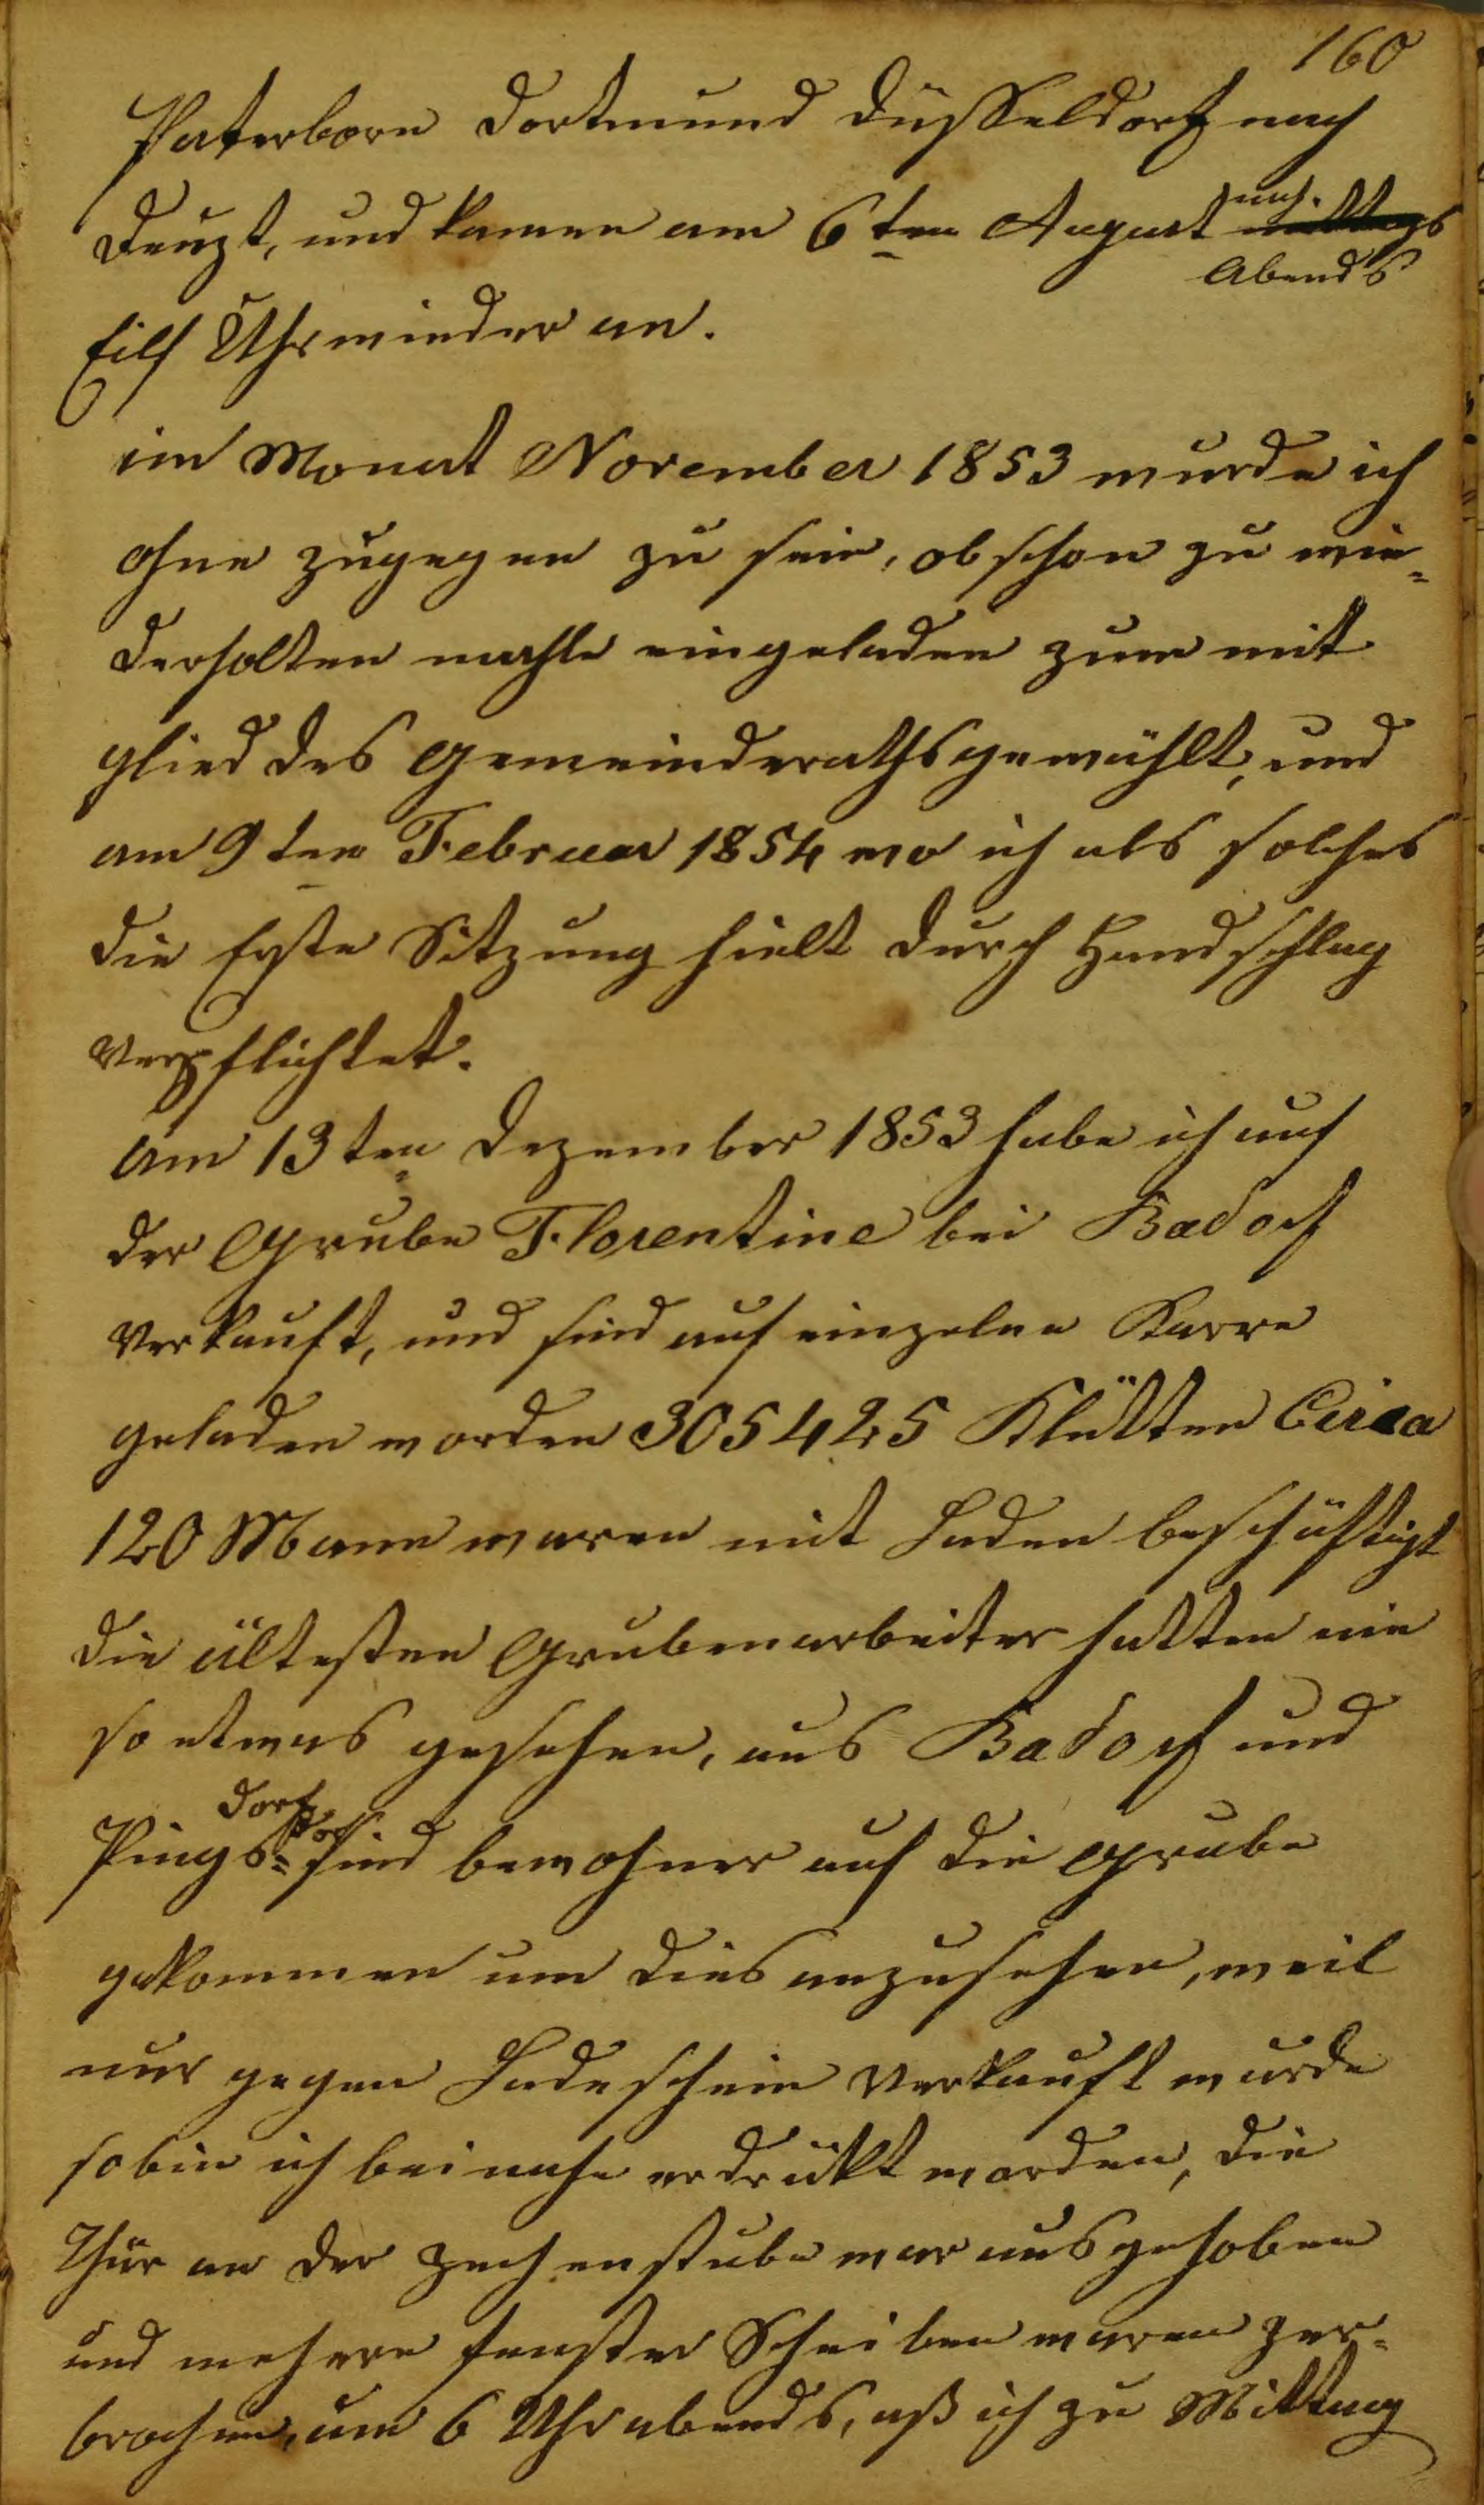 160
Paterborn Dortmund Düsseldorf nach
Deuzt, und kamen am 6ten August nach.
Abends
Eilf Uhr wieder an.
im Monat November 1853 wurde ich
ohne zugegen zu sein, obschon zu wie=
derholten mahle eingeladen zum mit
glied des Gemeinderaths gewählt, und
am 9ten Februar 1854 wo ich als solches
die Erste Sitzung hielt durch Handschlag
verpflichtet.
Am 13ten Dezember 1853 habe ich auf
der Grube Florentine bei Badorf
verkauft, und sind auf einzelne Karre
geladen worden 305425 Klütten Circa
120 Mann waren mit Laden beschäftigt
die ältesten Grubenarbeiter hatten nie
so etwas gesehen, aus Badorf und
Pings=dorf sind bewohner auf die Grube
gekommen um dies anzusehen, weil
nur gegen Ladeschein verkauft wurde
so bin ich beinahe erdrükt worden, die
Thür an der Zechenstube war ausgehoben
und mehere fenster Scheiben waren zer=
brochen, um 6 Uhr abends, aß ich zu Mittag